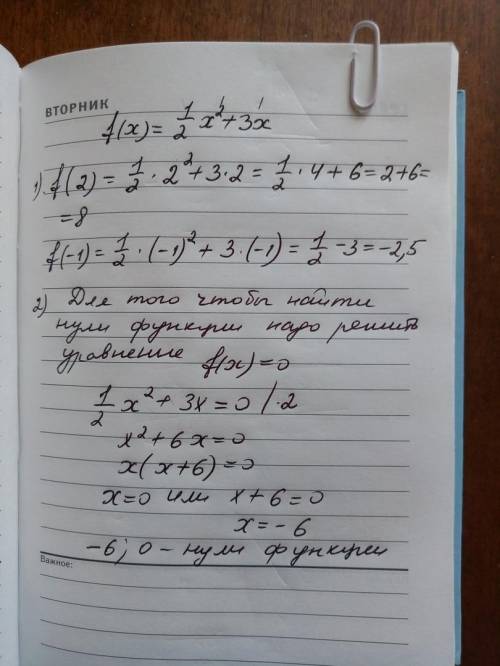 ВТОРНИК
f(x) = 1/2 x² + 3x
1) f(2) = 1/2 · 2² + 3·2 = 1/2 · 4 + 6 = 2+6=
= 8
f(-1) = 1/2 · (-1)² + 3·(-1) = 1/2 - 3 = -2,5
2) Для того чтобы найти
нули функции надо решить
уравнение f(x) = 0
1/2 x² + 3x = 0 /·2
x² + 6x = 0
x(x+6) = 0
x=0 или x+6=0
x = -6
-6; 0 - нули функции
Важное: